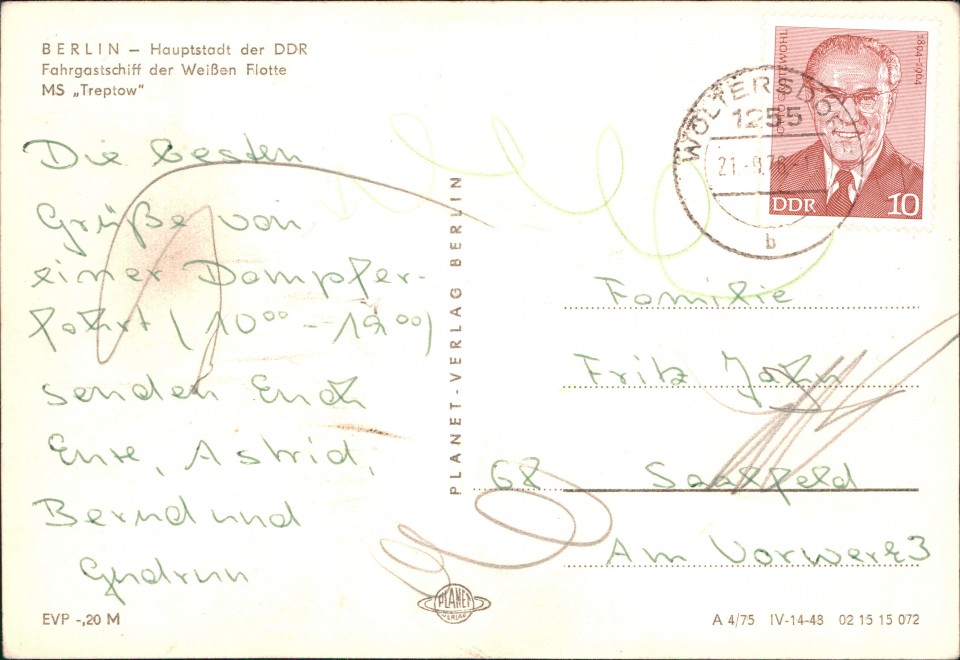 BERLIN – Hauptstadt der DDR
Fahrgastschiff der Weißen Flotte
MS „Treptow"
Die besten
Grüße von
einer Dampfer-
fahrt (10⁰⁰ - 19⁰⁰)
senden Euch
Eure, Astrid,
Bernd und
Gudrun
EVP -,20 M
PLANET-VERLAG BERLIN
PLANET
VERLAG
1894-1964
DDR 10
WOLTERSDORF
1255
b
Familie
Fritz Jahn
68 Saalfeld
Am Vorwerk 3
A 4/75 IV-14-48 02 15 15 072